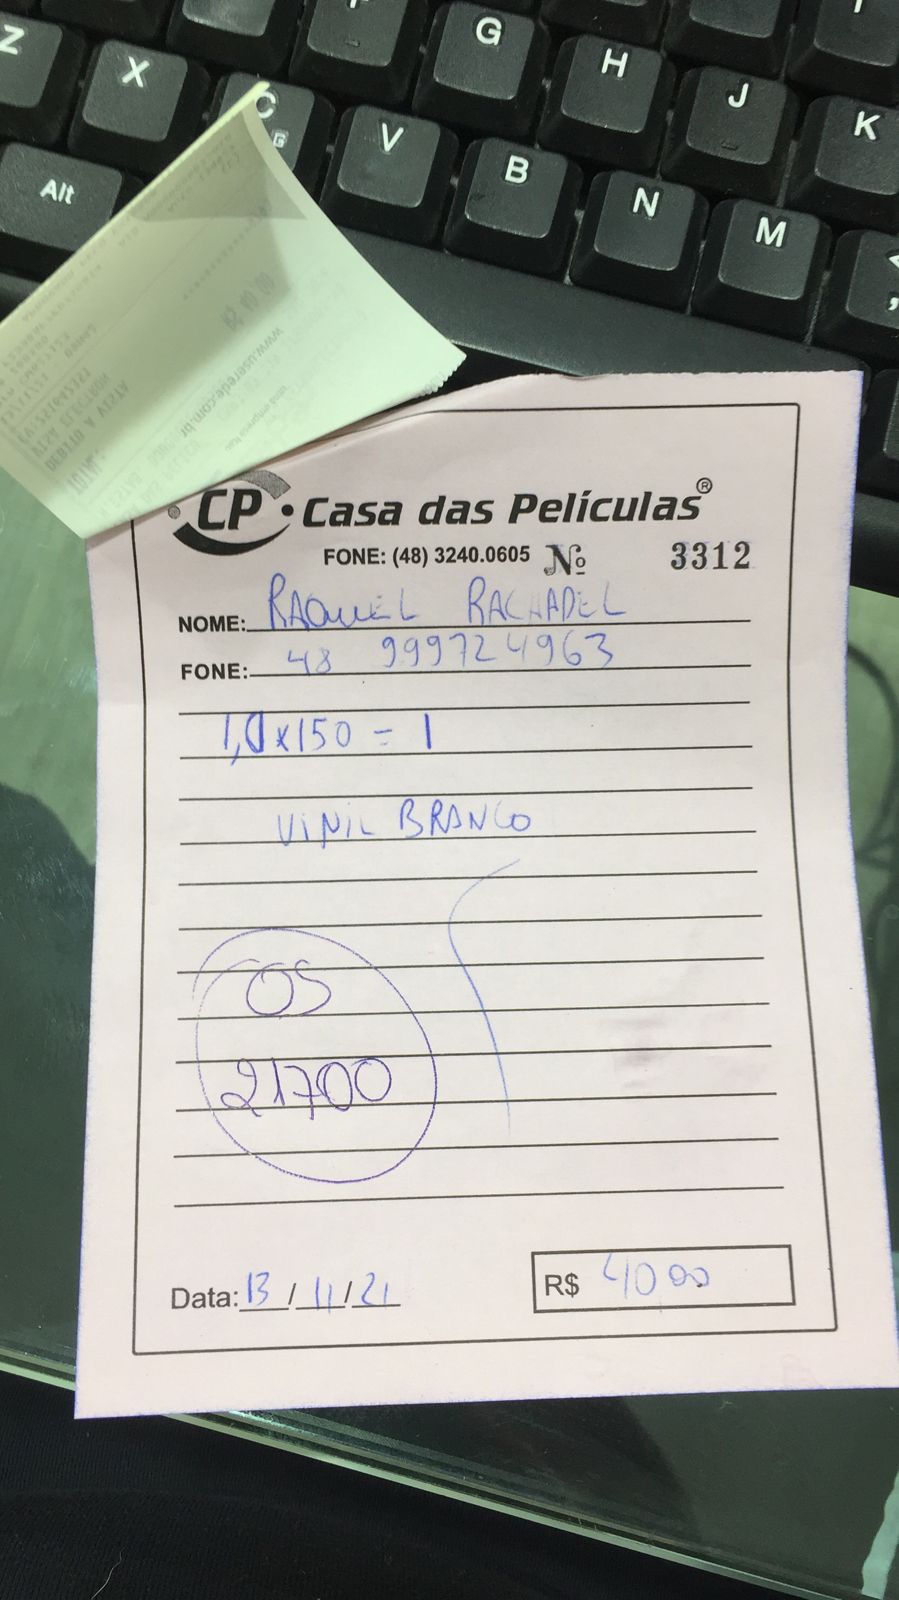 Z X C V G H J K
Alt B N M
CP Casa das Películas®
FONE: (48) 3240.0605 Nº 3312
NOME: RAQUEL RACHADEL
FONE: 48 999724963
1,0x150 = 1
VINIL BRANCO
OS
21700
Data: 13/11/21
R$ 40 00
www.userede.com.br
DEBITO A VISTA